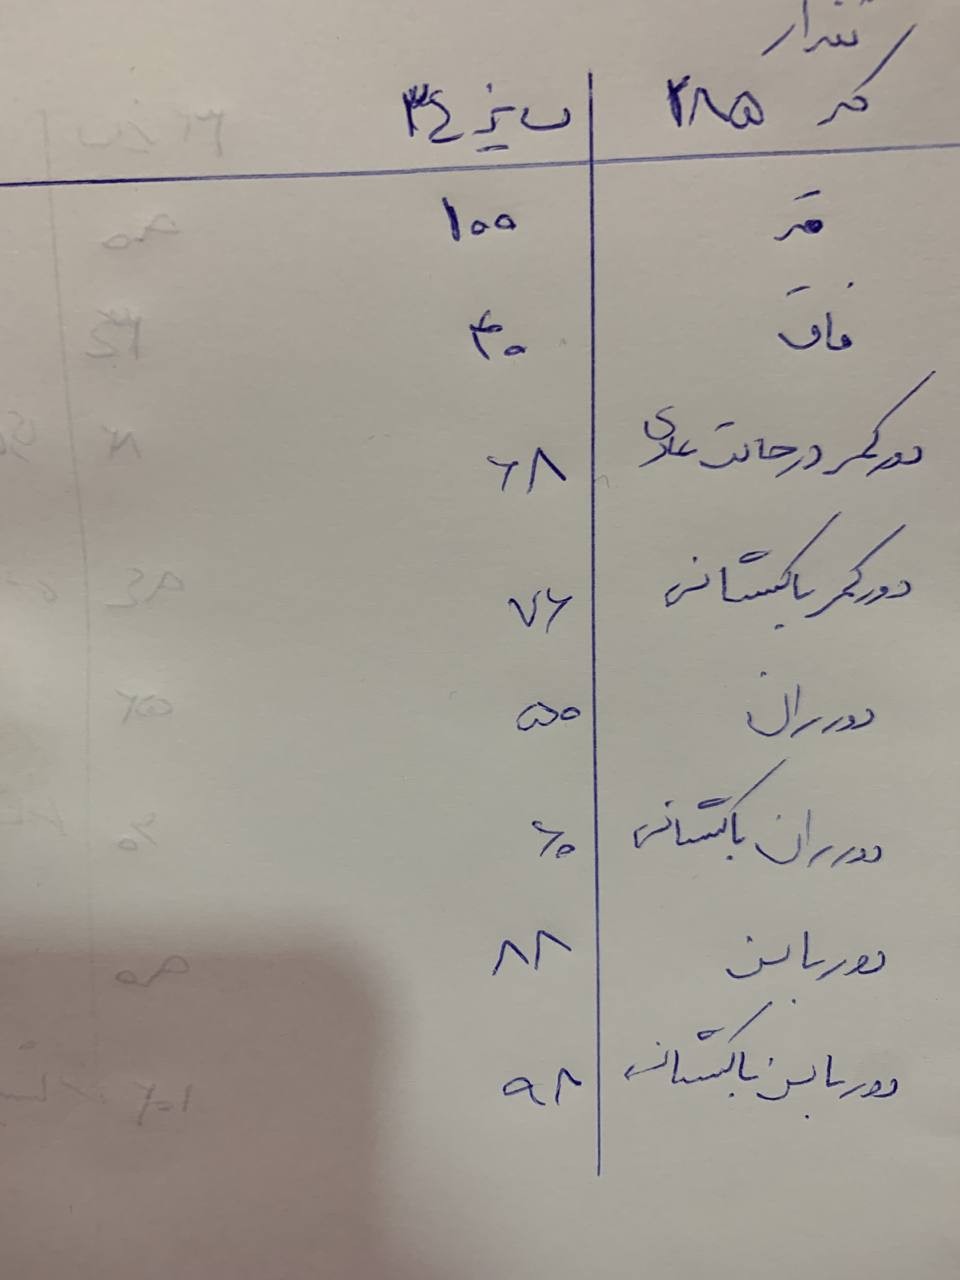 کد ۲۸۵ سایز ۳۴
قد ۱۰۰
فاق ۴۰
دور کمر در حالت عادی ۶۸
دور کمر باکشسانی ۷۶
دور ران ۵۰
دور ران باکشسانی ۶۰
دور باسن ۸۸
دور باسن باکشسانی ۹۸